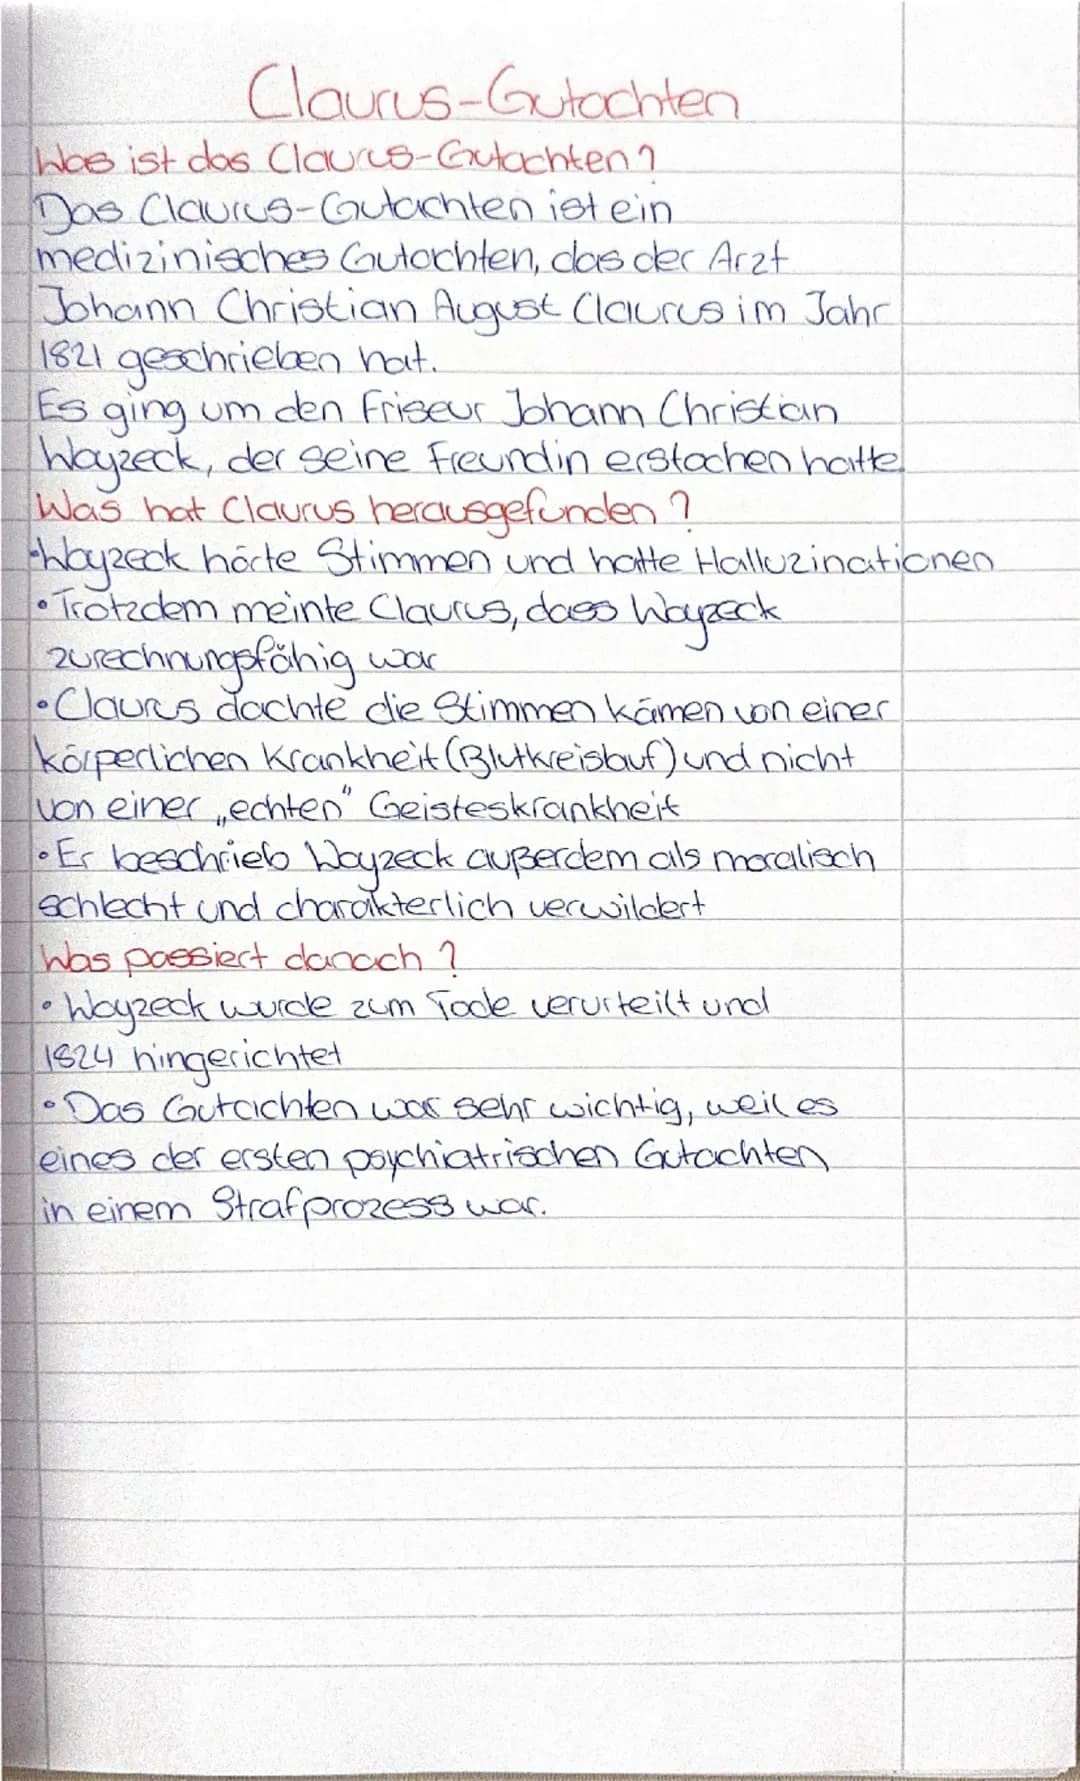 Claurus-Gutachten
Was ist das Claurus-Gutachten?
Das Claurus-Gutachten ist ein
medizinisches Gutachten, das der Arzt
Johann Christian August Claurus im Jahr
1821 geschrieben hat.
Es ging um den Friseur Johann Christian
Woyzeck, der seine Freundin erstochen hatte.
Was hat Claurus herausgefunden?
•Woyzeck hörte Stimmen und hatte Halluzinationen
•Trotzdem meinte Claurus, dass Woyzeck
zurechnungsfähig war
•Claurs dachte die Stimmen kämen von einer
körperlichen Krankheit (Blutkreislauf) und nicht
von einer „echten" Geisteskrankheit
•Er beschrieb Woyzeck außerdem als moralisch
schlecht und charakterlich verwildert
Was passiert danach?
•Woyzeck wurde zum Tode verurteilt und
1824 hingerichtet
•Das Gutachten war sehr wichtig, weil es
eines der ersten psychiatrischen Gutachten
in einem Strafprozess war.